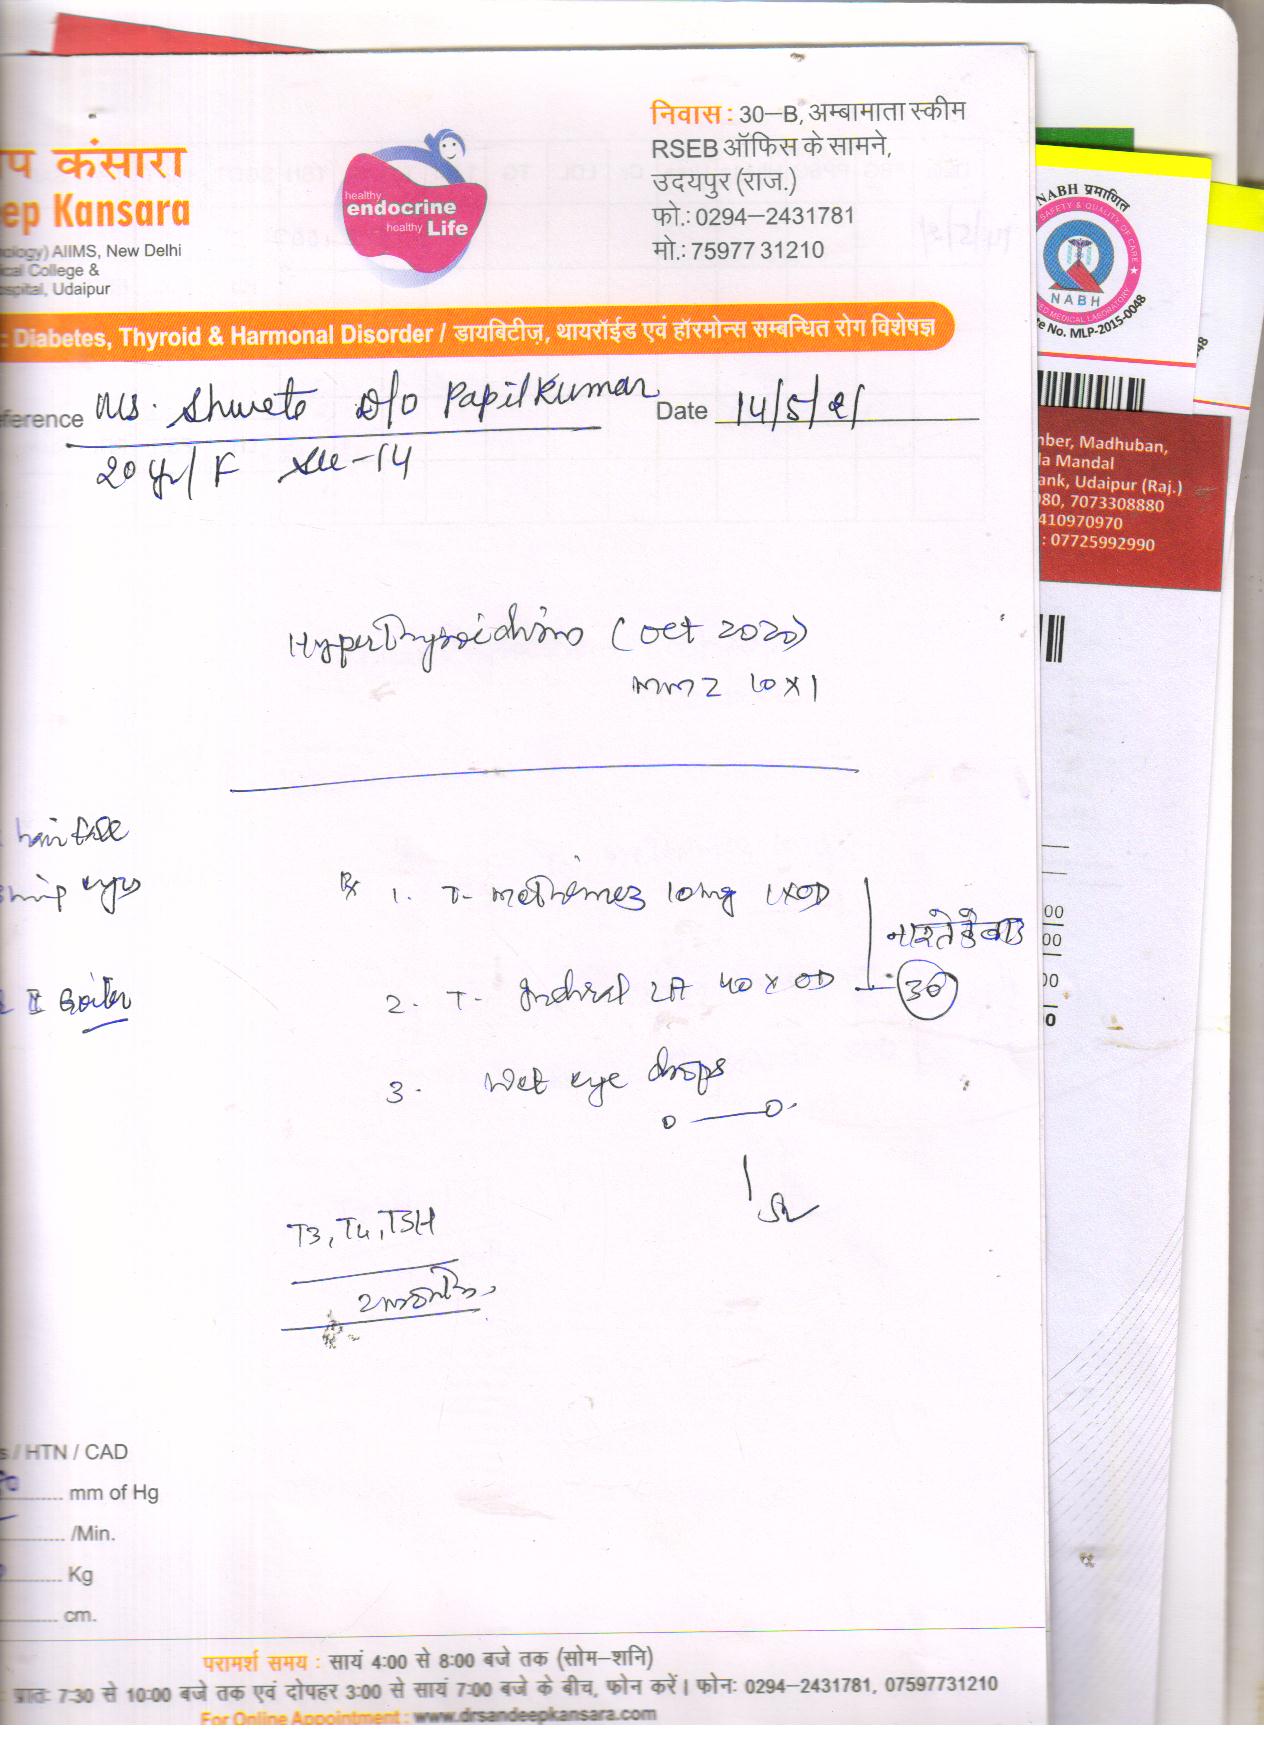 प कंसारा
eep Kansara
ology) AIIMS, New Delhi
ical College &
ospital, Udaipur
healthy
endocrine
healthy Life
निवास : 30–B, अम्बामाता स्कीम
RSEB ऑफिस के सामने,
उदयपुर (राज.)
फो.: 0294–2431781
मो.: 75977 31210
: Diabetes, Thyroid & Harmonal Disorder / डायबिटीज़, थायरॉईड एवं हॉरमोन्स सम्बन्धित रोग विशेषज्ञ
eference Ms. Shweta D/o Papil Kumar Date 14/5/21
20 yr/F -14
Hyperthyroidism (Oct 2020)
MMZ 10 x 1
hair fall
eyes
Goiter
Rx 1. T- Methimez 10mg 1xOD
नाश्ते के बाद
2. T- Inderal LA 40 x OD
30
3. Wet eye drops
T3, T4, TSH
2 months
s / HTN / CAD
mm of Hg
/Min.
Kg
cm.
परामर्श समय : सायं 4:00 से 8:00 बजे तक (सोम–शनि)
प्रातः 7:30 से 10:00 बजे तक एवं दोपहर 3:00 से सायं 7:00 बजे के बीच, फोन करें। फोनः 0294–2431781, 07597731210
For Online Appointment : www.drsandeepkansara.com
NABH प्रमाणित
SAFETY & QUALITY OF CARE
NABH
ED MEDICAL LABORATORY
te No. MLP-2015-0048
48
mber, Madhuban,
la Mandal
ank, Udaipur (Raj.)
080, 7073308880
410970970
: 07725992990
00
00
00
0